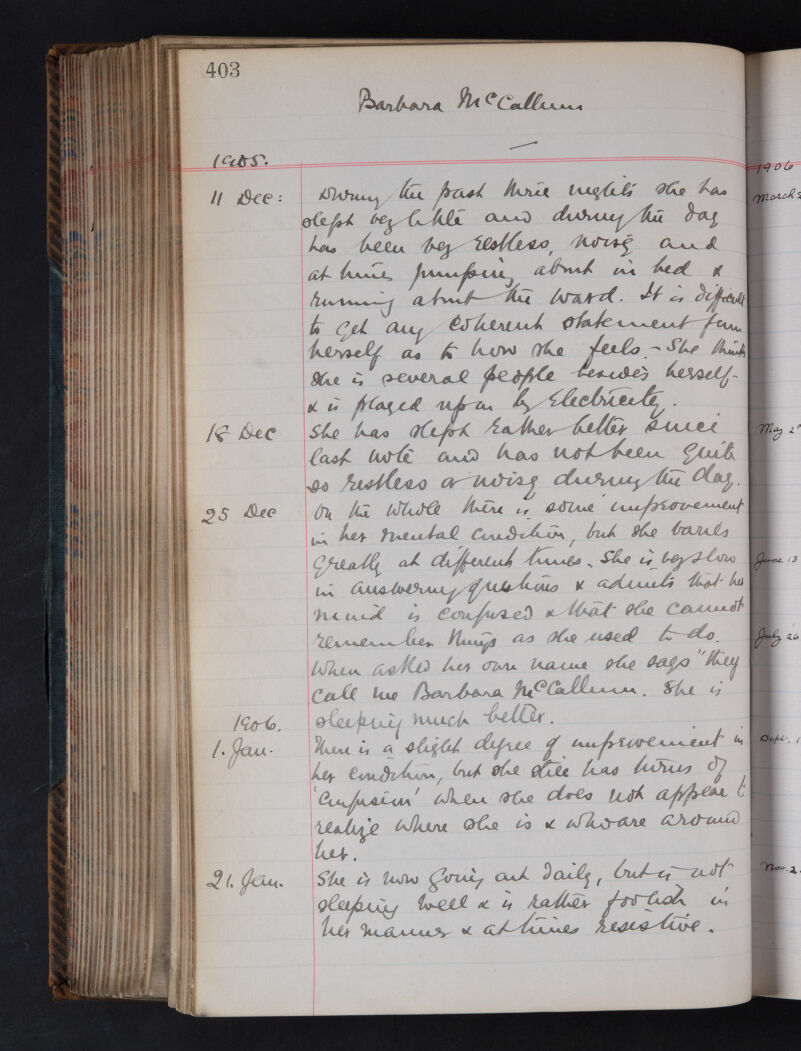 403
Barbara McCallum
1905.
11 Dec: During the past three nights she has
slept very little and during the day
has been very restless, noisy and
at times jumping about in bed &
running about the ward. It is difficult
to get any coherent statement from
herself as to how she feels - She thinks
she is several people besides herself -
& is played upon by Electricity.
18 Dec She has slept rather better since
last note and has not been quite
so restless or noisy during the day.
25 Dec On the whole there is some improvement
in her mental condition, but she varies
greatly at different times. She is very slow
in answering questions & admits that her
mind is confused & that she cannot
remember things as she used to do.
When asked her own name she says "they
call me Barbara McCallum. She is
1906. sleeping much better.
1. Jan. There is a slight degree of improvement in
her condition, but she still has turns of
'Confusion' when she does not appear to
realize where she is & who are around
her.
21. Jan. She is now going out daily, but is not
sleeping well & is rather foolish in
her manner & at times resistive.
1906
March
May 2
June 13
July 26
Sept. 1
Nov. 2